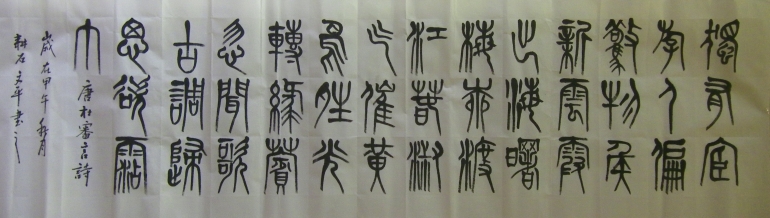 獨有宦
游人偏
驚物候
新雲霞
出海曙
梅柳渡
江春淑
气催黃
鳥晴光
轉綠蘋
忽聞歌
古調歸
思欲霑
巾
唐杜審言詩
歲在甲午秋月
耕石文年書之